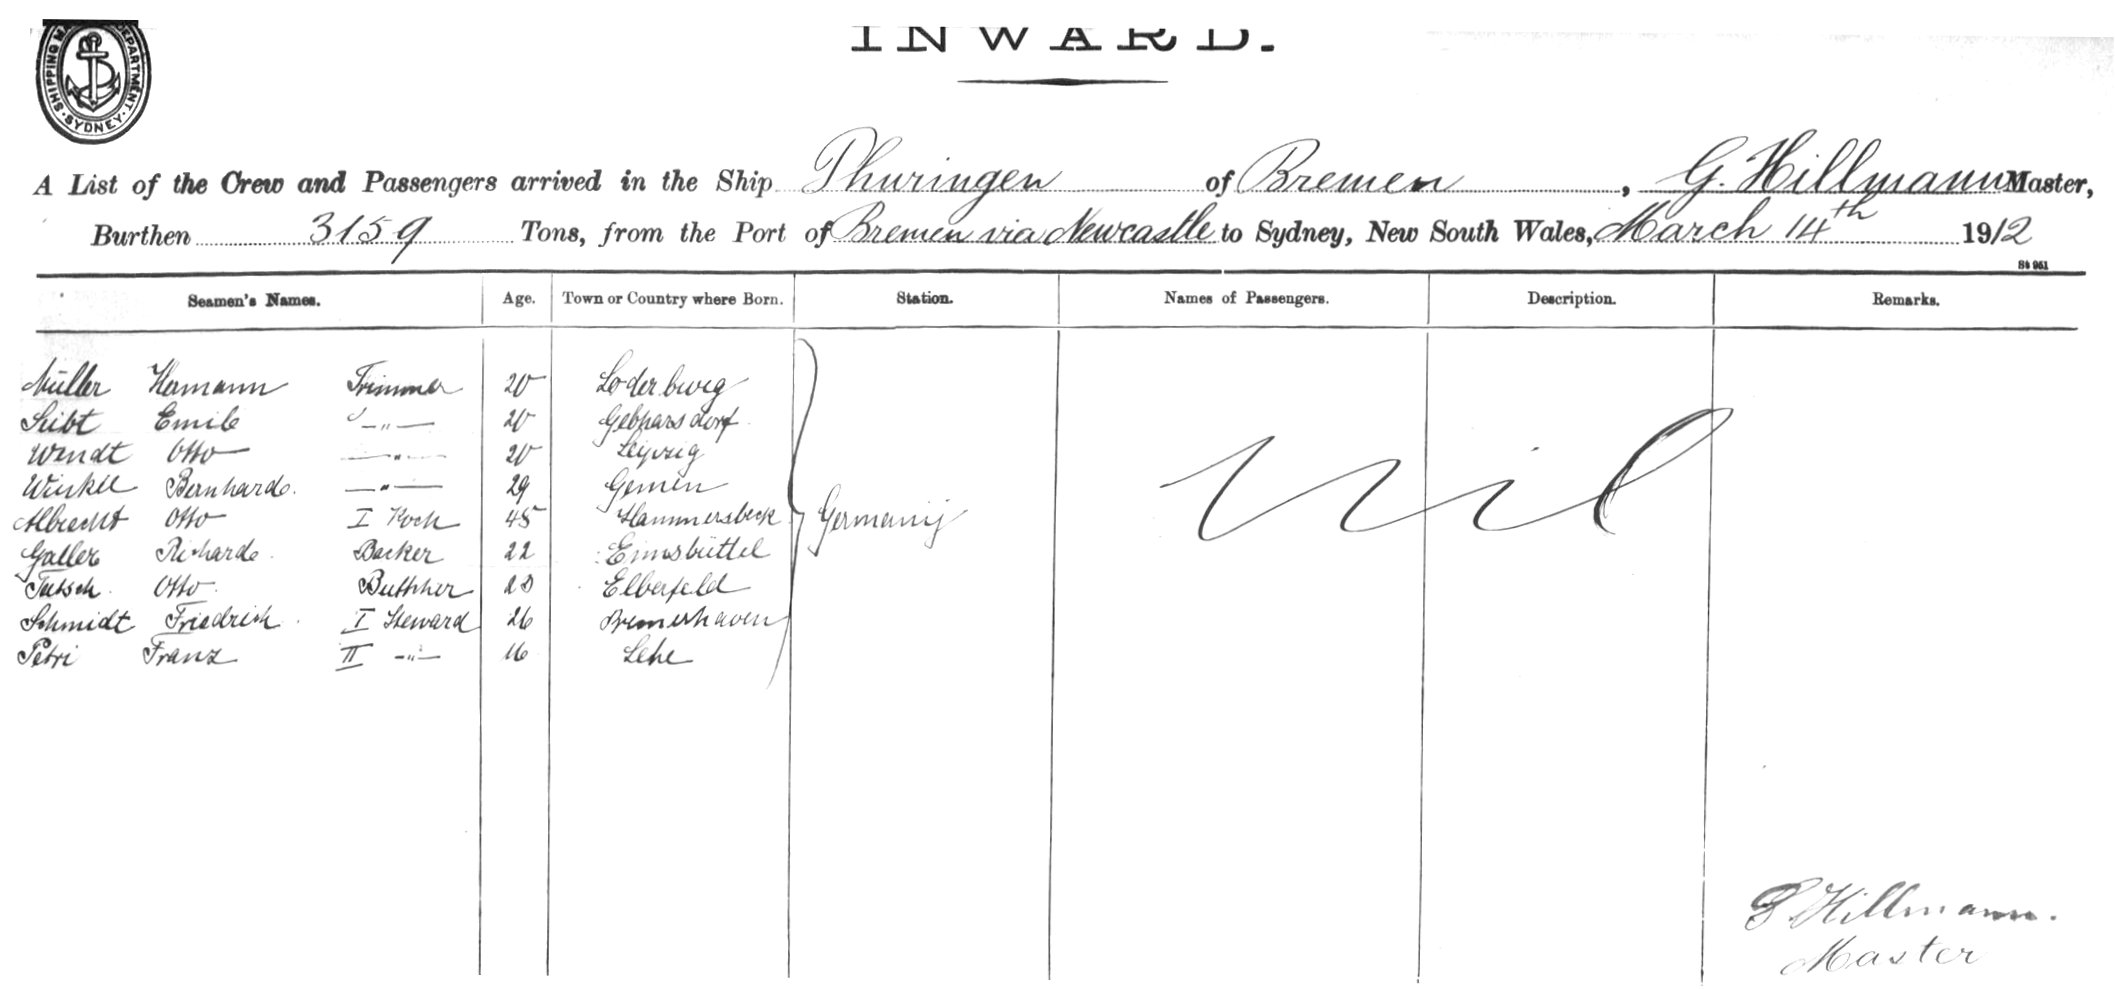 SHIPPING MA DEPARTMENT. SYDNEY.
INWARD.
A List of the Crew and Passengers arrived in the Ship Thuringen of Bremen, G. Hillmann Master,
Burthen 3159 Tons, from the Port of Bremen via Newcastle to Sydney, New South Wales, March 14th 1912
St 961
Seamen's Names. Age. Town or Country where Born. Station. Names of Passengers. Description. Remarks.
Müller Hermann Trimmer 20 Loderburg
Seibt Emil —„— 20 Gebharsdorf
Wendt Otto —„— 20 Leipzig
Winkel Bernhard. —„— 29 Gemen
Albrecht Otto I Koch 45 Hammersbeck Germany nil
Galler Richard Backer 22 Eimsbüttel
Otto Elberfeld
Schmidt Friedrich I Steward 26 Bremerhaven
Petri Franz II —„— 16 Lehe
Hillmann.
Master